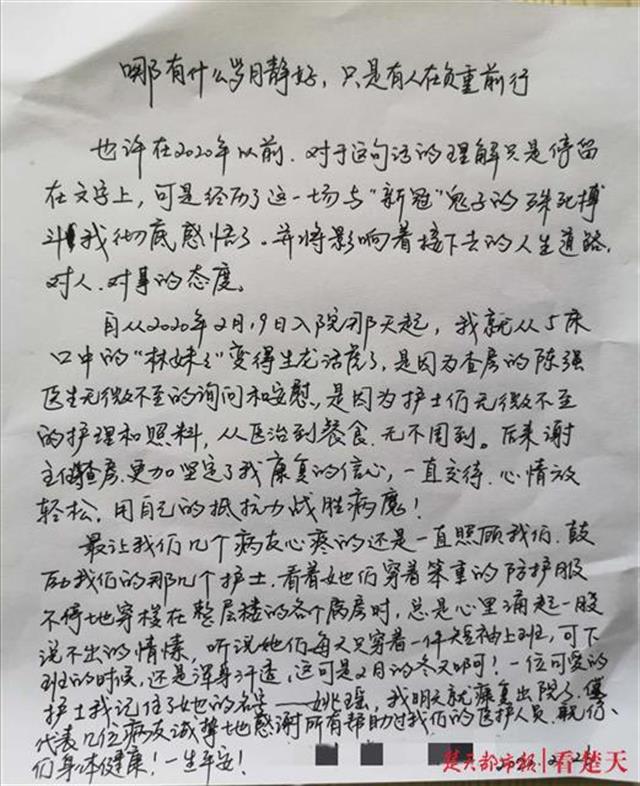 哪有什么岁月静好，只是有人在负重前行
也许在2020年以前，对于这句话的理解只是停留
在文字上，可是经历了这一场与“新冠”鬼子的殊死搏
斗我彻底感悟了。并将影响着接下去的人生道路，
对人、对事的态度。
自从2020年2月19日入院那天起，我就从5床
口中的“林妹妹”变得生龙活虎了，是因为查房的陈强
医生无微不至的询问和安慰，是因为护士们无微不至
的护理和照料，从医治到餐食，无不周到。后来谢
主任查房，更加坚定了我康复的信心，一直交待，心情放
轻松，用自己的抵抗力战胜病魔！
最让我们几个病友心疼的还是一直照顾我们、鼓
励我们的那几个护士，看着她们穿着笨重的防护服
不停地穿梭在整层楼的各个病房时，总是心里涌起一股
说不出的情愫，听说她们每天只穿着一件短袖上班，可下
班的时候，还是浑身汗透，这可是2月的冬天啊！一位可爱的
护士我记住了她的名字——姚瑶，我明天就康复出院了，仅
代表几位病友诚挚地感谢所有帮助过我们的医护人员，祝你
们身体健康！一生平安！
楚天都市报 看楚天